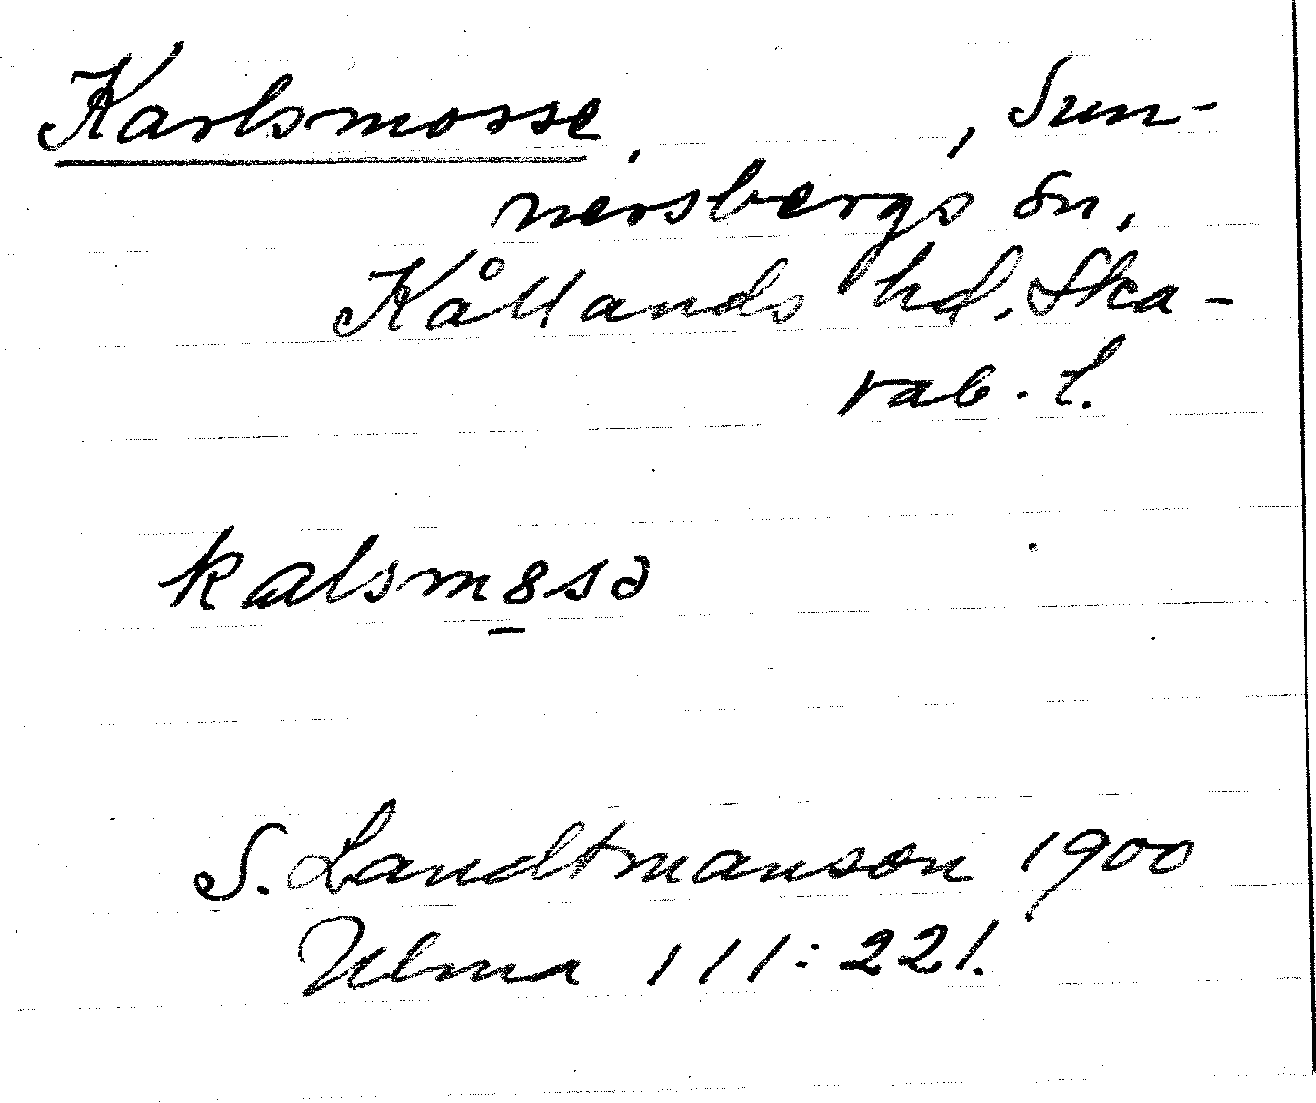 Karlsmosse, Sun-
nersbergs sn,
Kållands hd. Ska-
rab. l.
kalsm8sə
S. Landtmanson 1900
Ulma 111:221.